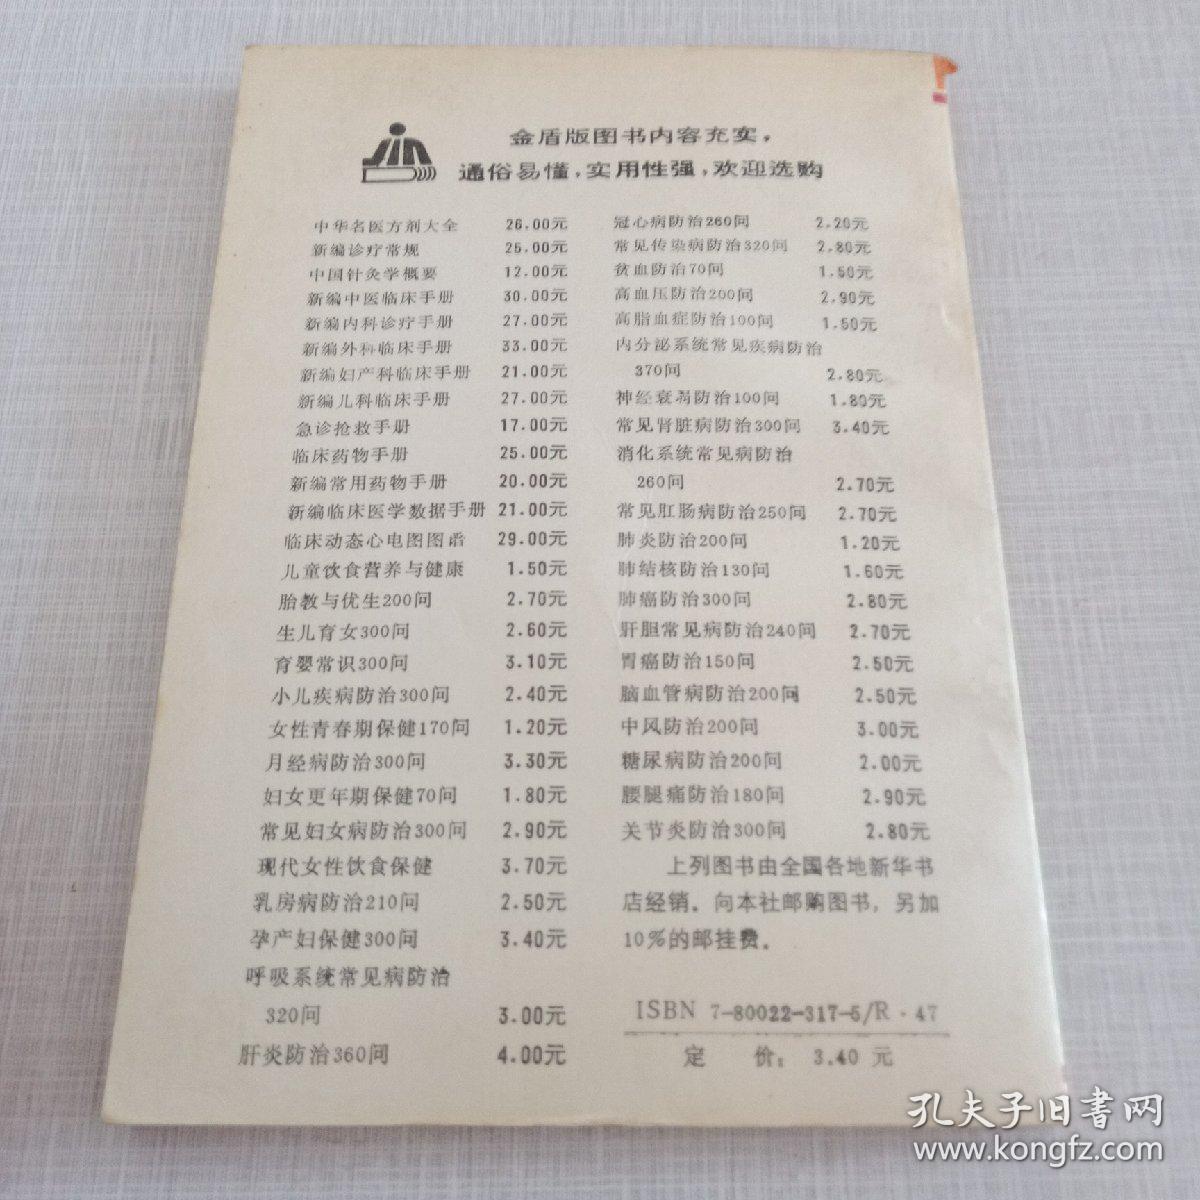 金盾版图书内容充实，
通俗易懂，实用性强，欢迎选购
中华名医方剂大全 26.00元
新编诊疗常规 25.00元
中国针灸学概要 12.00元
新编中医临床手册 30.00元
新编内科诊疗手册 27.00元
新编外科临床手册 33.00元
新编妇产科临床手册 21.00元
新编儿科临床手册 27.00元
急诊抢救手册 17.00元
临床药物手册 25.00元
新编常用药物手册 20.00元
新编临床医学数据手册 21.00元
临床动态心电图图谱 29.00元
儿童饮食营养与健康 1.50元
胎教与优生200问 2.70元
生儿育女300问 2.60元
育婴常识300问 3.10元
小儿疾病防治300问 2.40元
女性青春期保健170问 1.20元
月经病防治300问 3.30元
妇女更年期保健70问 1.80元
常见妇女病防治300问 2.90元
现代女性饮食保健 3.70元
乳房病防治210问 2.50元
孕产妇保健300问 3.40元
呼吸系统常见病防治
320问 3.00元
肝炎防治360问 4.00元
冠心病防治260问 2.20元
常见传染病防治320问 2.80元
贫血防治70问 1.50元
高血压防治200问 2.90元
高脂血症防治100问 1.50元
内分泌系统常见疾病防治
370问 2.80元
神经衰弱防治100问 1.80元
常见肾脏病防治300问 3.40元
消化系统常见病防治
260问 2.70元
常见肛肠病防治250问 2.70元
肺炎防治200问 1.20元
肺结核防治130问 1.60元
肺癌防治300问 2.80元
肝胆常见病防治240问 2.70元
胃癌防治150问 2.50元
脑血管病防治200问 2.50元
中风防治200问 3.00元
糖尿病防治200问 2.00元
腰腿痛防治180问 2.90元
关节炎防治300问 2.80元
上列图书由全国各地新华书
店经销。向本社邮购图书，另加
10%的邮挂费。
ISBN 7-80022-317-5/R·47
定 价：3.40 元
孔夫子旧书网
www.kongfz.com